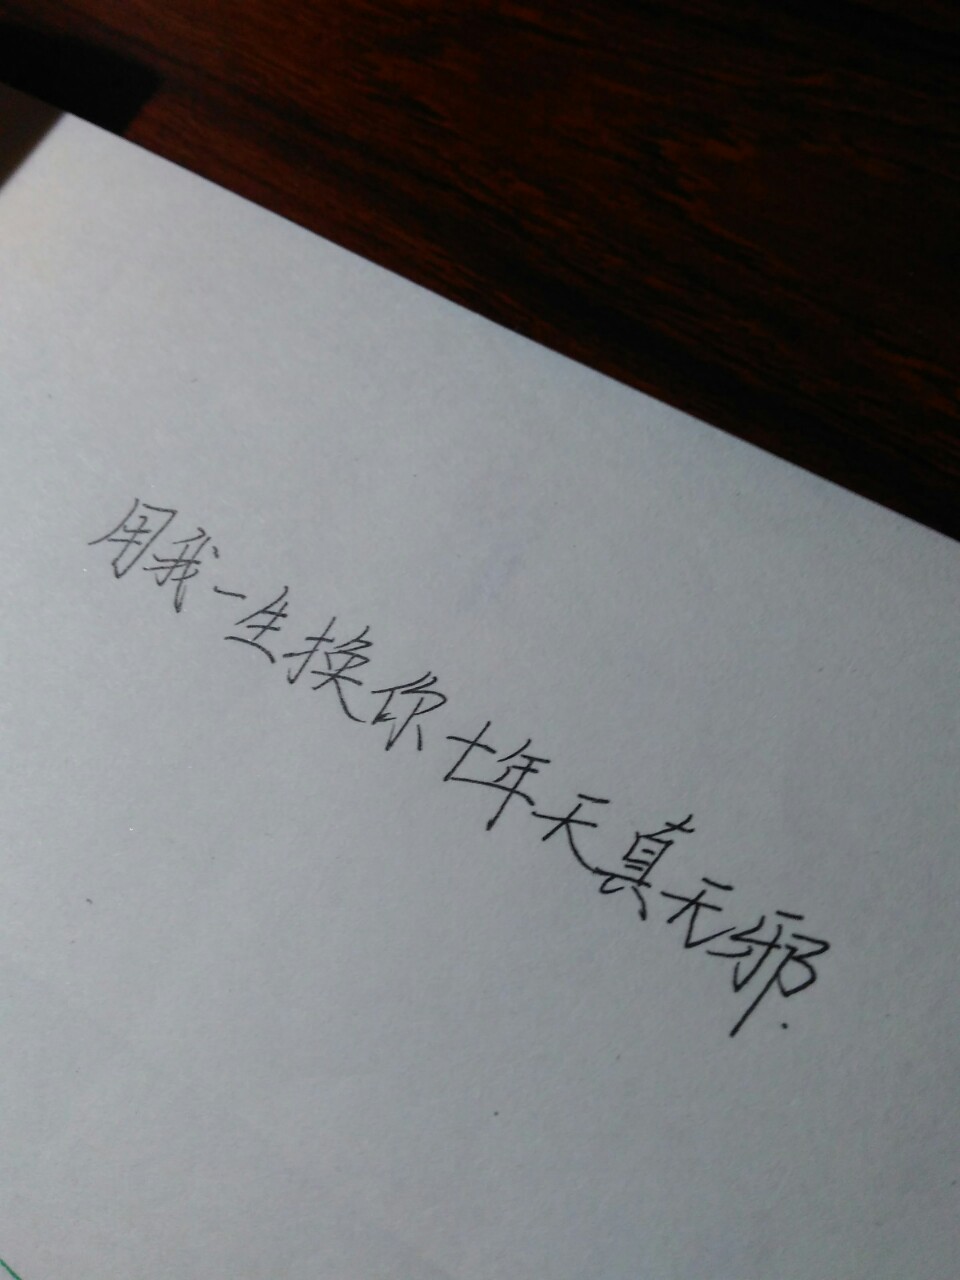 用我一生换你七年天真无邪.